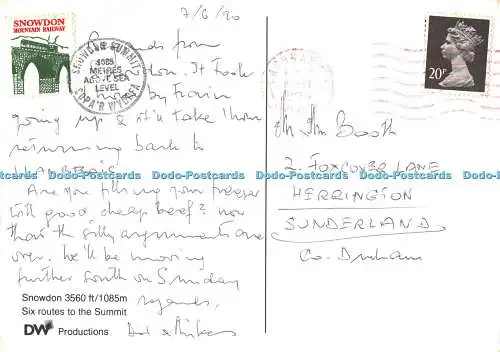 7/6/90
SNOWDON
MOUNTAIN RAILWAY
SNOWDON SUMMIT
1085
METRES
ABOVE SEA
LEVEL
COPA'R WYDDFA
from
It took
by train
going up & it'll take 1 hour
returning back to
LLANBERIS
Are you filling your freezer
with good cheap beef? now
that the silly arguments are
over. We'll be moving
further south on Sunday
regards,
Snowdon 3560 ft/1085m
Six routes to the Summit
DW Productions
20P
Booth
2, FOXCOVER LANE
HERRINGTON
SUNDERLAND,
Co. Durham
Dodo-Postcards Dodo-Postcards Dodo-Postcards Dodo-Postcards